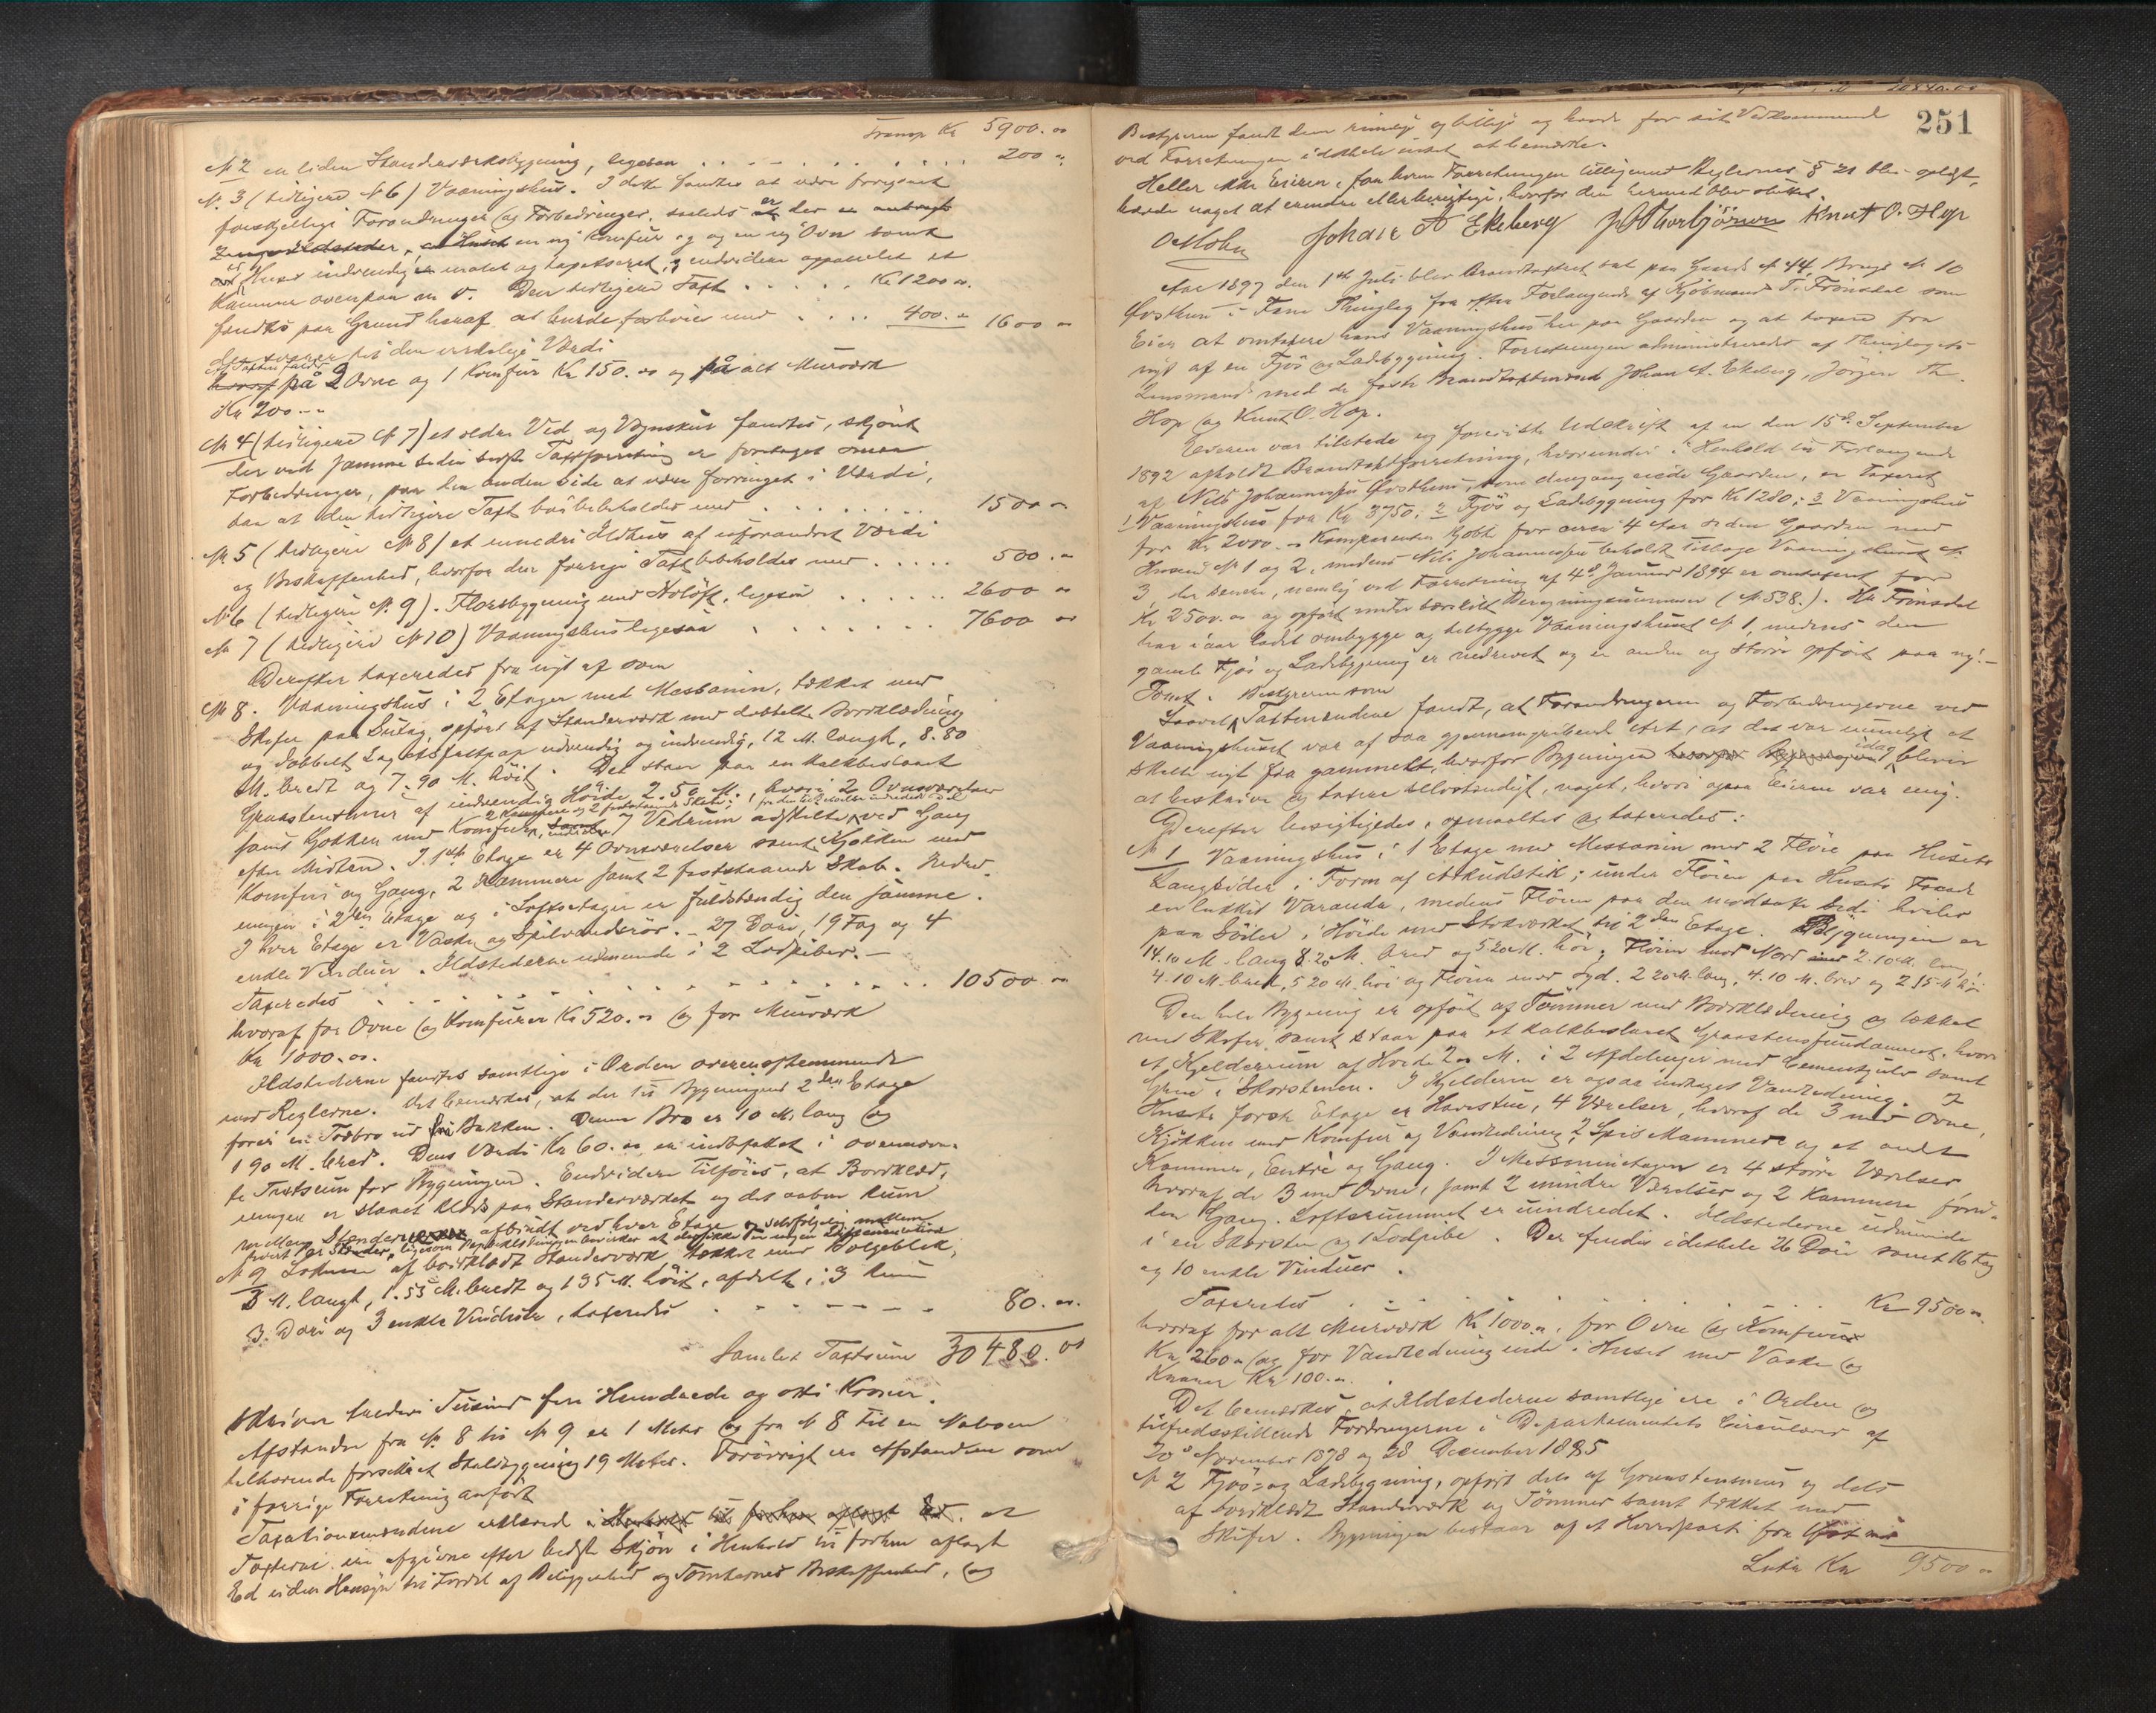 Transp Kr 5900.00
№ 2 en liden Standerværksbygning, ligesaa . . . . . . . . . 200 "
№ 3 (tidligere № 6) Vaaningshus. I dette fandtes at være foregaaet
forskjellige Forandringer og Forbedringer, saaledes er der
en ny Komfur og og en ny Ovn samt
Huset indvendig malet og tapetseret, endvidere oppanelet et
Kammer ovenpaa m. v. Den tidligere Taxt . . . . . Kr 1200 00
fandtes paa Grund heraf at burde forhøies med . . . . 400. " 1600 00
der svarer til den virkelige Værdi
Af Taxten falder
på 2 Ovne og 1 Komfur Kr 150.00 og på alt Murværk
Kr 200 - "
№ 4 (tidligere № 7) et ældre Ved og Vognskur fandtes, skjønt
der ved samme siden sidste Taxtforretning er foretaget
Forbedringer, paa den anden side at være forringet i Værdi,
saa at den tidligere Taxt bør beholdes med . . . . . . . . 1500 00
№ 5 (tidligere № 8) et innredet Ildhus af uforandret Værdi
og Beskaffenhed, hvorfor den forrige Taxt beholdes med . . . . . 500.00
№ 6 (tidligere № 9). Florsbygning med Høløft, ligesaa . . . . . . . 2600 00
№ 7 (tidligere № 10) Vaaningshus ligesaa . . . . . . . 7600 00
Derefter taxeredes fra nyt af som
№ 8. Vaaningshus i 2 Etager med Messanin, tækket med
Skifer paa Sutag, opført af Standerværk med dobbelte Bordklædning
og dobbelt Lag udvendig og indvendig, 12 M. langt, 8.80
M. bredt og 7.90 M. høit. Det staar paa en kalkbeslaaet
Graastensmur af indvendig Høide 2.50 M., hvori 2 Ovnsværelser
samt Kjøkken med Komfur, Vedrum adskilte ved Gang
efter Midten. I 1ste Etage er 4 Ovnsværelser samt Kjøkken med
Komfur og Gang, 2 Kammere samt 2 faststaaende Skab. Indred-
ningen i 2den Etage og i Loftsetagen er fuldstændig den samme.
I hver Etage er Vaske og Spilvandsrør. - 27 Døre, 19 Fag og 4
enkle Vinduer. Ildstederne udmunde i 2 Lodpiber. -
Taxeredes . . . . . . . . . . . . . . . . 10500 00
hvoraf for Ovne og Komfurer Kr 520.00 og for Murværk
Kr 1000.00.
Ildstederne fandtes samtlige i Orden overensstemmende
med Reglerne. Det bemærkes, at der til Bygningens 2den Etage
fører en Træbro ud fra Bakken. Denne Bro er 10 M. lang og
1 90 M. bred. Dens Værdi Kr 60.00 er indbefattet i ovennævn-
te Taxtsum for Bygningen. Endvidere tilføies, at Bordklæd-
ningen er slaaet klods paa Standerværket og det aabne Rum
mellem Standerne afbrudt ved hver Etage og selvfølgelig mellem
hvert Par Stænder,
№ 9 Lokum af bordklædt Standerværk tækket med Bølgeblik,
3 M. langt, 1.55 M. bredt og 1 95 M. høit, afdelt i 3 Rum
3 Døre og 3 enkle Vinduer, taxeredes . . . . . . . 80.00.
Samlet Taxtsum 30480.00
skriver tredive Tusind fire Hundrede og otti Kroner.
Afstanden fra № 8 til № 9 er 1 Meter og fra № 8 til en Naboen
tilhørende forsikret Staldbygning 19 Meter. Forøvrigt er Afstandene som
i forrige Forretning anført
Taxationsmændene erklærede at
Taxterne ere afgivne efter bedste Skjøn i Henhold til forhen aflagt
Ed uden Hensyn til Fordel af Beliggenhed og Tomternes Beskaffenhed, og
251
Bestyreren fandt dem rimelige og billige og havde for sit Vedkommende
ved Forretningen idethele intet at bemærke.
Heller ikke Eieren, for hvem Forretningen tilligemed Reglernes § 21 blev oplæst,
havde noget at erindre eller berigtige, hvorfor den hermed blev sluttet.
Johan A Ekeberg Knut O. Hop
Aar 1897 den 1ste Juli blev Brandtaxtret sat paa Gaards № 44, Brugs № 10
Øvsthun i Fane Thinglag fra efter Forlangende af Kjøbmand T. Frønsdal som
Eier at omtaxere hans Vaaningshus her paa Gaarden og at taxere fra
nyt af en Fjøs og Ladebygning. Forretningen administreredes af Thinglagets
Lensmand med de faste Brandtaxtmænd Johan A. Ekeberg, Jørgen Th.
Hop og Knut O. Hop.
Eieren var tilstede og foreviste Udskrift af en den 15de September
1892 afholdt Brandtaxtforretning, hvorunder i Henhold til Forlangende
af Nils Johannessen Øvsthun, som dengang eiede Gaarden, er Taxeret
1 Vaaningshus for Kr 3750; 2 Fjøs og Ladebygning for Kr 1280; 3 Vaaningshus
for Kr 2000. - Komparenten kjøbte for circa 4 Aar siden Gaarden med
Husene № 1 og 2, medens Nils Johannessen beholdt tilbage Vaaningshuset №
3 der senere, nemlig ved Forretning af 4de Januar 1894 er omtaxeret for
Kr 2500.00 og opført under særskilt Beregningsnummer (№ 538.). Hr Frønsdal
har iaar ladet ombygge og tilbygge Vaaningshuset № 1, medens den
gamle Fjøs og Ladebygning er nedrevet og en anden og større opført paa ny
Tomt. Bestyreren som
Saavel Taxtmændene fandt, at Forandringerne og Forbedringerne ved
Vaaningshuset var af saa gjennemgribende Art, at det var umuligt at
skille nyt fra gammelt, hvorfor Bygningen idag bliver
at beskrive og taxere selvstændigt, noget, hvori ogsaa Eieren var enig.
Derefter besigtigedes, opmaaltes og taxeredes:
№ 1 Vaaningshus i 1 Etage med Messanin med 2 Fløie paa Husets
Langsider i Form af Arkudstik; under Fløien paa Husets Facade
en lukket Varanda, medens Fløien paa den modsatte Side hviler
paa Søiler i Høide med Stokværket til 2den Etage. Bygningen er
14.10 M. lang 8.20 M. bred og 5 20 M. høi; Fløien mod Nord 2.10 M. lang,
4.10 M. bred, 5 20 M. høi og Fløien mod Syd. 2 20 M. lang, 4.10 M. bred og 2.15 M høi
Den hele Bygning er opført af Tømmer med Bordklædning og tækket
med Skifer samt staar paa et kalkbeslaaet Graastensfundament, hvori
et Kjelderrum af Høide 2 00 M. i 2 Afdelinger med Cementgulv samt
Grue i Skorstenen. I Kjelderen er ogsaa indtaget Vandledning. I
Husets første Etage er Havestue, 4 Værelser, hvoraf de 3 med Ovne,
Kjøkken med Komfur og Vandledning, 2 Spiskammere og et andet
Kammer, Entrè og Gang. I Messaninetagen er 4 større Værelser
hvoraf de 3 med Ovne, samt 2 mindre Værelser og 2 Kammere foru-
den Gang. Loftsrummet er uindredet. Ildstederne udmunde
i en Skorsten og 1 Lodpibe. Der findes idethele 26 Døre samt 16 Fag
og 10 enkle Vinduer.
Taxeredes . . . . . . . . . Kr 9500 00
hvoraf for alt Murværk Kr 1000.00, for Ovne og Komfurer
Kr 260 00 og for Vandledning inde i Huset med Vaske og
Kraner Kr 100.00.
Det bemærkes, at Ildstederne samtlige ere i Orden og
tilfredsstillende Fordringerne i Departementets Circulærer af
20de November 1878 og 28 December 1885
№ 2 Fjøs og Ladebygning, opført dels af Graastensmur og dels
af bordklædt Standerværk og Tømmer samt tækket med
Skifer. Bygningen bestaar af et Hovedparti fra Øst mod
Latr Kr 9500 00